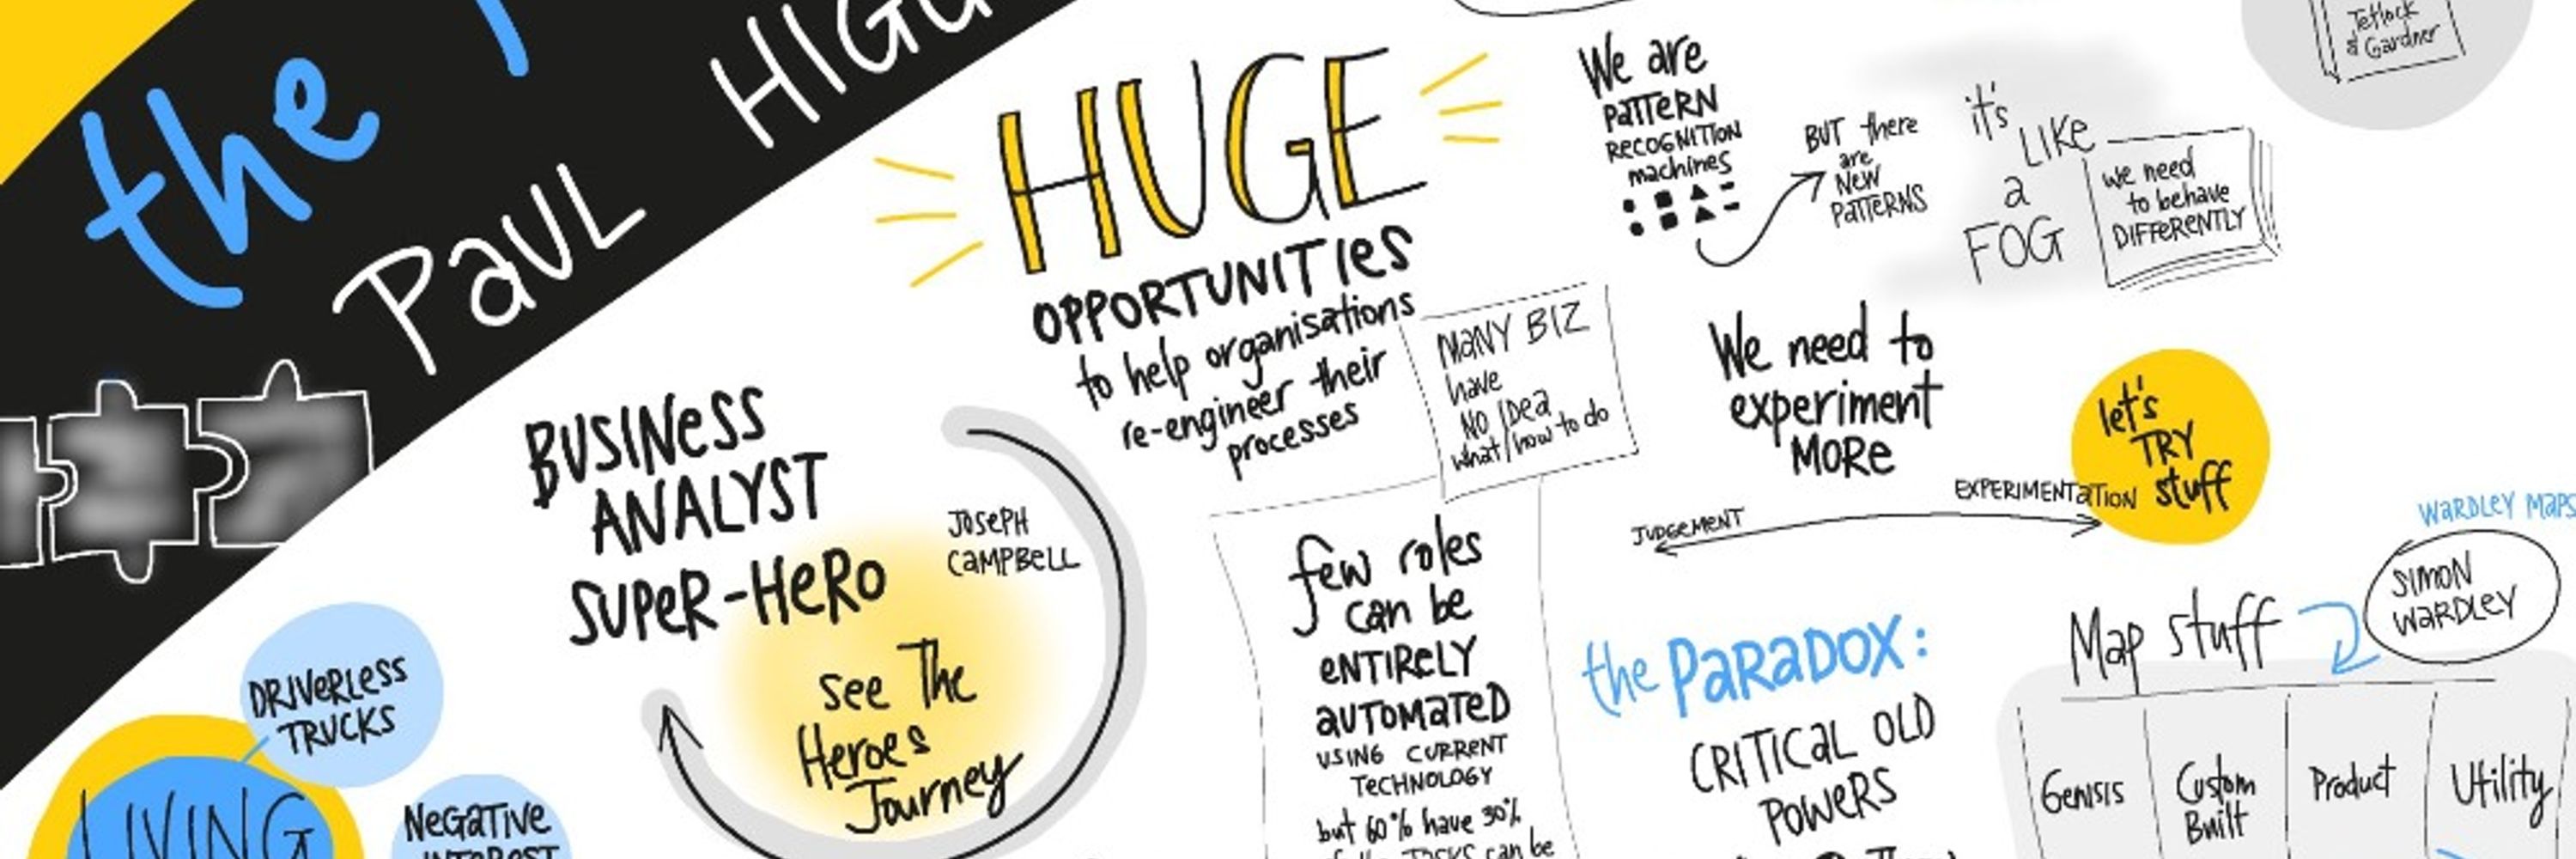 the
PAUL
HUGE
OPPORTUNITIES
to help organisations
re-engineer their
processes
MANY BIZ
have
NO IDEA
what/how to do
BUSINESS
ANALYST
SUPER-HERO
JOSEPH
CAMPBELL
See The
Heroes
Journey
DRIVERLESS
TRUCKS
LIVING
NEGATIVE
INTEREST
few roles
can be
ENTIRELY
AUTOMATED
USING CURRENT
TECHNOLOGY
but 60% have 30%
of the TASKS can be
We are
PATTERN
RECOGNITION
machines
BUT there
are
NEW
PATTERNS
it's
LIKE
a
FOG
we need
to behave
DIFFERENTLY
Tetlock
& Gardner
We need to
experiment
MORE
JUDGEMENT
EXPERIMENTATION
let's
TRY
stuff
the PARADOX:
CRITICAL OLD
POWERS
WARDLEY MAPS
SIMON
WARDLEY
Map stuff
Genisis
Custom
Built
Product
Utility